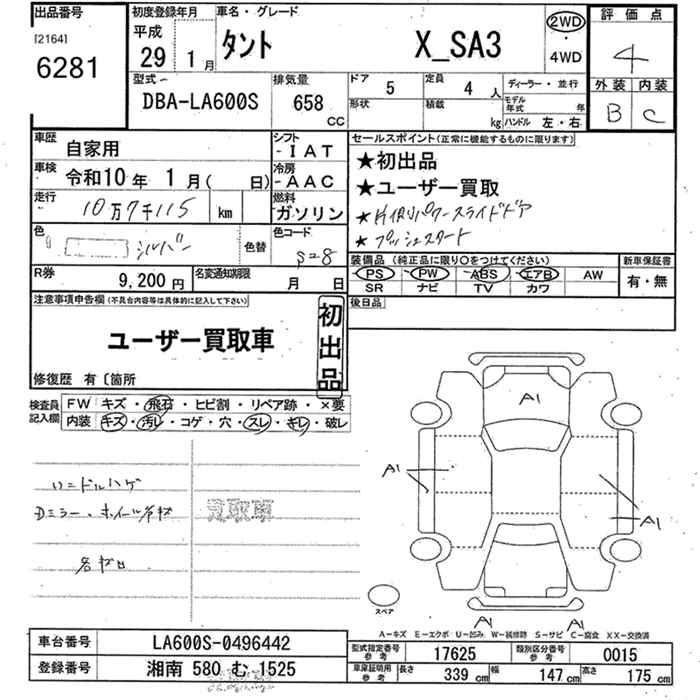 出品番号
[2164]
6281
初度登録年月
平成
29 1月
車名・グレード
タント X_SA3
2WD
・
4WD
評価点
4
外装 内装
B C
型式
DBA-LA600S
排気量
658 CC
ドア 5
形状
定員 4 人
積載 kg
ディーラー・並行
モデル年式 年
ハンドル 左・右
車歴 自家用
車検 令和10年 1月( 日)
走行 10万7千115 km
色 シルバー 色替
シフト
-IAT
冷房
-AAC
燃料
ガソリン
色コード
S28
セールスポイント(正常に機能するものに限ります)
★初出品
★ユーザー買取
★片側パワースライドドア
★プッシュスタート
R券 9,200円
名変通知期限 月 日
装備品(純正品に限り○をつけてください)
PS・PW・ABS・エアB・AW
SR ナビ TV カワ
新車保証書
有・無
後日品
注意事項申告欄(不具合内容等は具体的に記入して下さい)
ユーザー買取車
初出品
修復歴 有〔箇所
検査員記入欄
FW キズ・飛石・ヒビ割・リペア跡・×要
内装 キズ・汚レ・コゲ・穴・スレ・キレ・破レ
ハンドルハゲ
Dミラー・ホイール
買取車
A1
A1
A1
A1
A1
スペア
A-キズ E-エクボ U-凹み W-補修跡 S-サビ C-腐食 XX-交換済
車台番号 LA600S-0496442
登録番号 湘南 580 む 1525
型式指定番号 参考 17625
類別区分番号 参考 0015
車庫証明用 参考
長さ 339 cm 幅 147 cm 高さ 175 cm